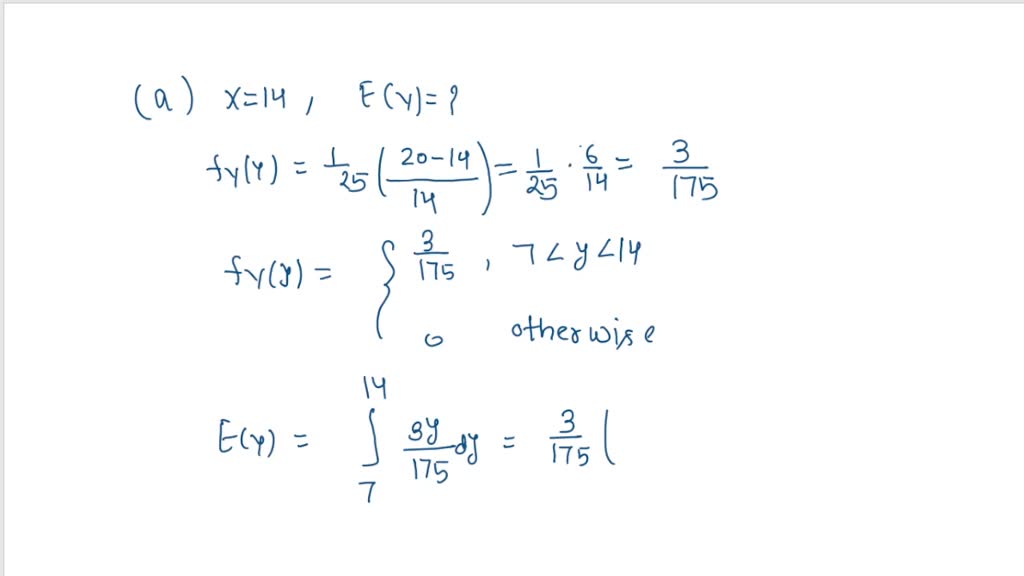 (a) x=14 , E(Y)= ?
fy(Y) = 1/25 ( 20-14 / 14 ) = 1/25 · 6/14 = 3/175
fy(y) = { 3/175 , 7 < y < 14
0 otherwise
E(Y) = ∫_7^14 3y/175 dy = 3/175 (